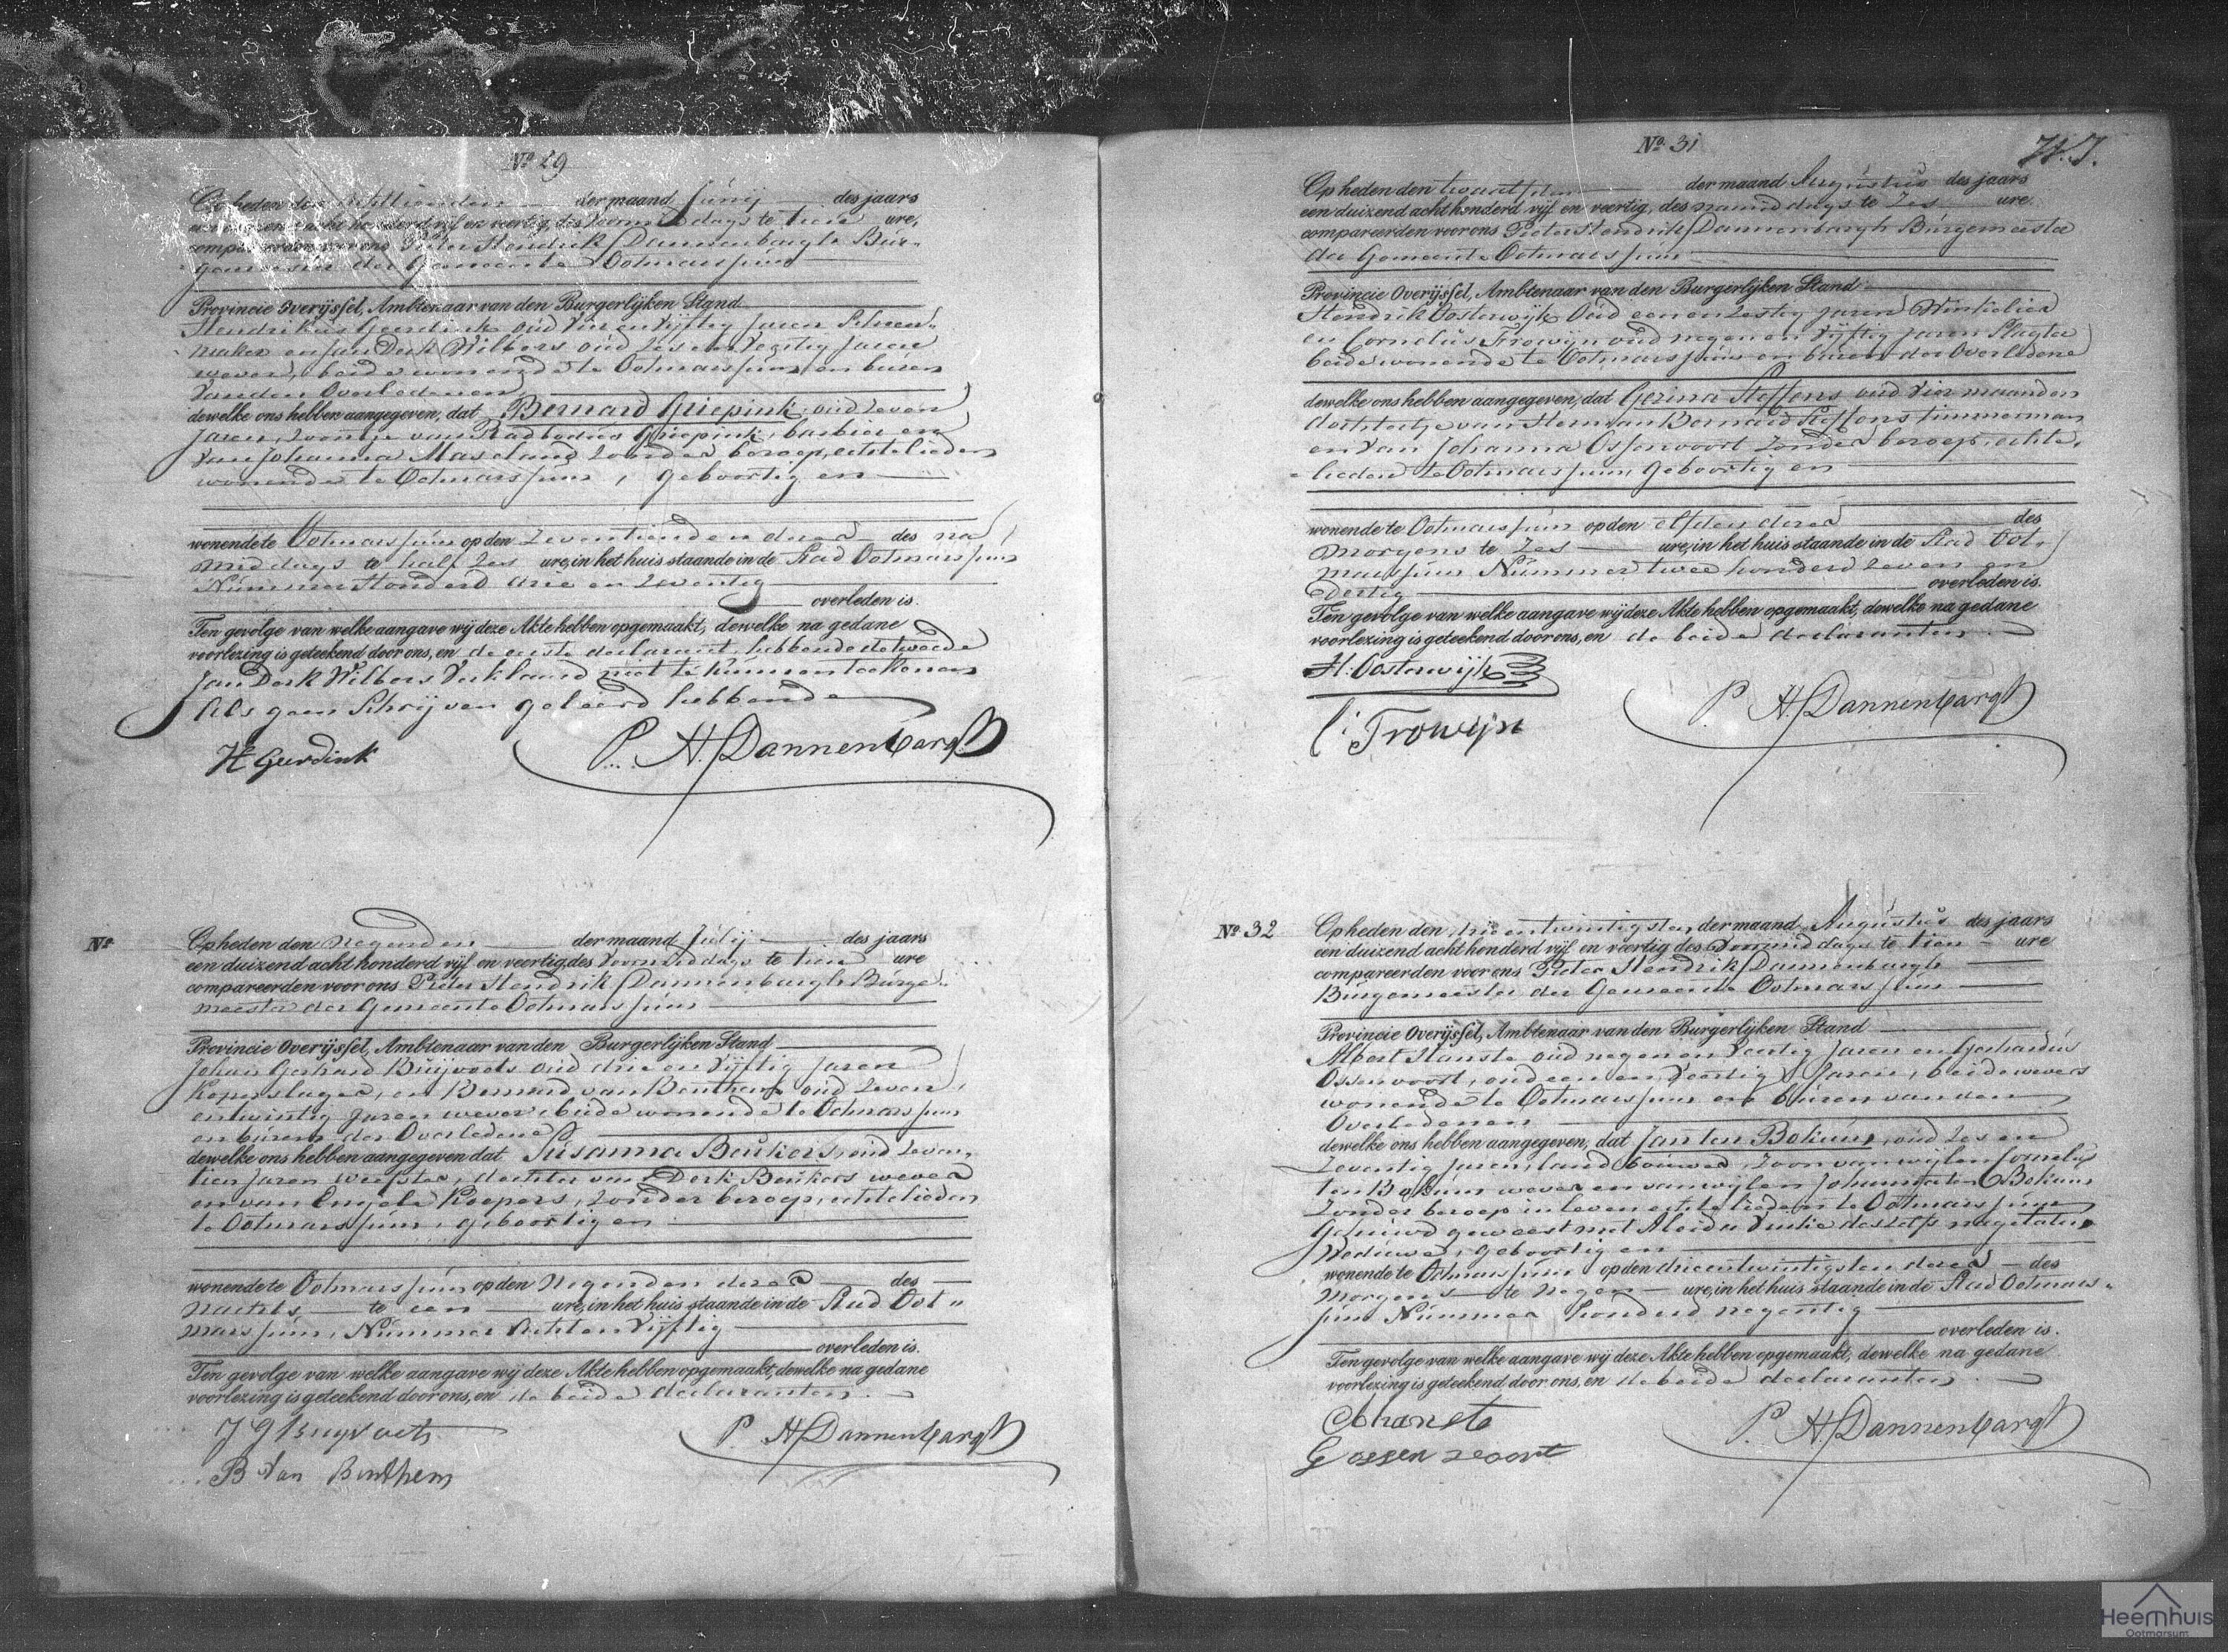 No. 29
Op heden den achttienden der maand Junij des jaars
een duizend acht honderd vijf en veertig, des voormiddags te tien ure,
compareerden voor ons Pieter Hendrik Dannenbargh Bur-
gemeester der Gemeente Ootmarssum
Provincie Overijssel, Ambtenaar van den Burgerlijken Stand
Hendrikus Geerdink oud vier en vijftig Jaren Schoen-
maker en Jan Derk Wilbers oud zes en Jaren
wever, beide wonende te Ootmarssum en buren
van den Overledenen
dewelke ons hebben aangegeven, dat Bernard Griepink, oud zeven
Jaren, zoontje van Radbodus Griepink, barbier en
van Johanna Maseland zonder beroep, echtelieden
wonende te Ootmarssum, geboortig en
wonende te Ootmarssum op den zeventienden dezer des na
middags te half zes ure, in het huis staande in de Stad Ootmarssum
Nummer Honderd drie en zeventig
overleden is.
Ten gevolge van welke aangave wij deze Akte hebben opgemaakt, dewelke na gedane
voorlezing is geteekend door ons, en de eerste declarant, hebbende de tweede
Jan Derk Wilbers verklaard niet te kunnen teekenen
als geen Schrijven geleerd hebbende
H Geerdink P. H. Dannenbargh
No.
Op heden den Negenden der maand Julij des jaars
een duizend acht honderd vijf en veertig, des voormiddags te tien ure
compareerden voor ons Pieter Hendrik Dannenbargh Burge-
meester der Gemeente Ootmarssum
Provincie Overijssel, Ambtenaar van den Burgerlijken Stand
Johan Gerhard Buijvoets oud drie en vijftig Jaren
Koperslager, en Bernard van Benthem oud zeven
en twintig Jaren wever beide wonende te Ootmarssum
en buren der Overledene
dewelke ons hebben aangegeven dat Susanna Beukers, oud zeven-
tien Jaren weefster, dochter van Derk Beukers wever
en van Engele Koepers, zonder beroep, echtelieden
te Ootmarssum, geboortig en
wonende te Ootmarssum op den Negenden dezer des
nachts te een ure, in het huis staande in de Stad Oot-
marssum, Nummer Acht en vijftig
overleden is.
Ten gevolge van welke aangave wij deze Akte hebben opgemaakt, dewelke na gedane
voorlezing is geteekend door ons, en de beide declaranten.
J G Buyvoets P. H. Dannenbargh
B van Benthem
No. 31
Op heden den twaalfden der maand Augustus des jaars
een duizend acht honderd vijf en veertig, des namiddags te zes ure
compareerden voor ons Pieter Hendrik Dannenbargh Burgemeester
der Gemeente Ootmarssum
Provincie Overijssel, Ambtenaar van den Burgerlijken Stand
Hendrik Oosterwijk Oud een en zestig Jaren Winkelier
en Cornelus Frowijn oud negen en vijftig Jaren Slagter
beide wonende te Ootmarssum en buren der Overledene
dewelke ons hebben aangegeven, dat Gerina Steffens oud vier maanden
dochtertje van Herman Bernard Steffens timmerman
en van Johanna Ossenvoort zonder beroep, echte-
lieden te Ootmarssum, geboortig en
wonende te Ootmarssum op den elfden dezer des
Morgens te zes ure, in het huis staande in de Stad Oot-
marssum Nummer twee honderd zeven en
dertig overleden is.
Ten gevolge van welke aangave wij deze Akte hebben opgemaakt, dewelke na gedane
voorlezing is geteekend door ons, en de beide declaranten.
H. Oosterwijk
C. Frowijn P. H. Dannenbargh
No. 32
Op heden den drie en twintigsten der maand Augustus des jaars
een duizend acht honderd vijf en veertig des voormiddags te tien ure
compareerden voor ons Pieter Hendrik Dannenbargh
Burgemeester der Gemeente Ootmarssum
Provincie Overijssel, Ambtenaar van den Burgerlijken Stand
Albert Hanste oud negen en veertig Jaren en Gerhardus
Ossenvoort, oud een en veertig Jaren, beide wevers
wonende te Ootmarssum en buren van den
Overledenen
dewelke ons hebben aangegeven, dat Jan ten Bokum, oud zes en
zeventig Jaren, landbouwer, zoon van wijlen Cornelis
ten Bokum wever en van wijlen Johanna ten Bokum
zonder beroep in leven echtelieden te Ootmarssum
Gehuwd geweest met Aleida deszelfs nagelaten
Weduwe, geboortig en
wonende te Ootmarssum op den drieentwintigsten dezer des
morgens te Negen ure, in het huis staande in de Stad Ootmars-
sum Nummer honderd negentig
overleden is.
Ten gevolge van welke aangave wij deze Akte hebben opgemaakt, dewelke na gedane
voorlezing is geteekend door ons, en de beide declaranten.
A hanste P. H. Dannenbargh
G ossen voort
Heemhuis
Ootmarsum